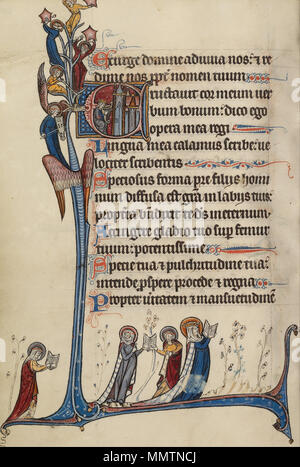 Exurge domine adiuua nos: et re
dime nos propter nomen tuum
Eructauit cor meum uer
bum bonum: dico ego
opera mea regi
Lingua mea calamus scribe: ue
lociter scribentis
Speciosus forma pre filijs homi
num diffusa est gratia in labijs tuis:
propterea benedixit te deus in eternum
Accingere gladio tuo super femur
tuum: potentissime
Specie tua et pulchritudine tua:
intende prospere procede et regna
Propter ueritatem et mansuetudinem
alamy
Image ID: MMTNCJ
www.alamy.com